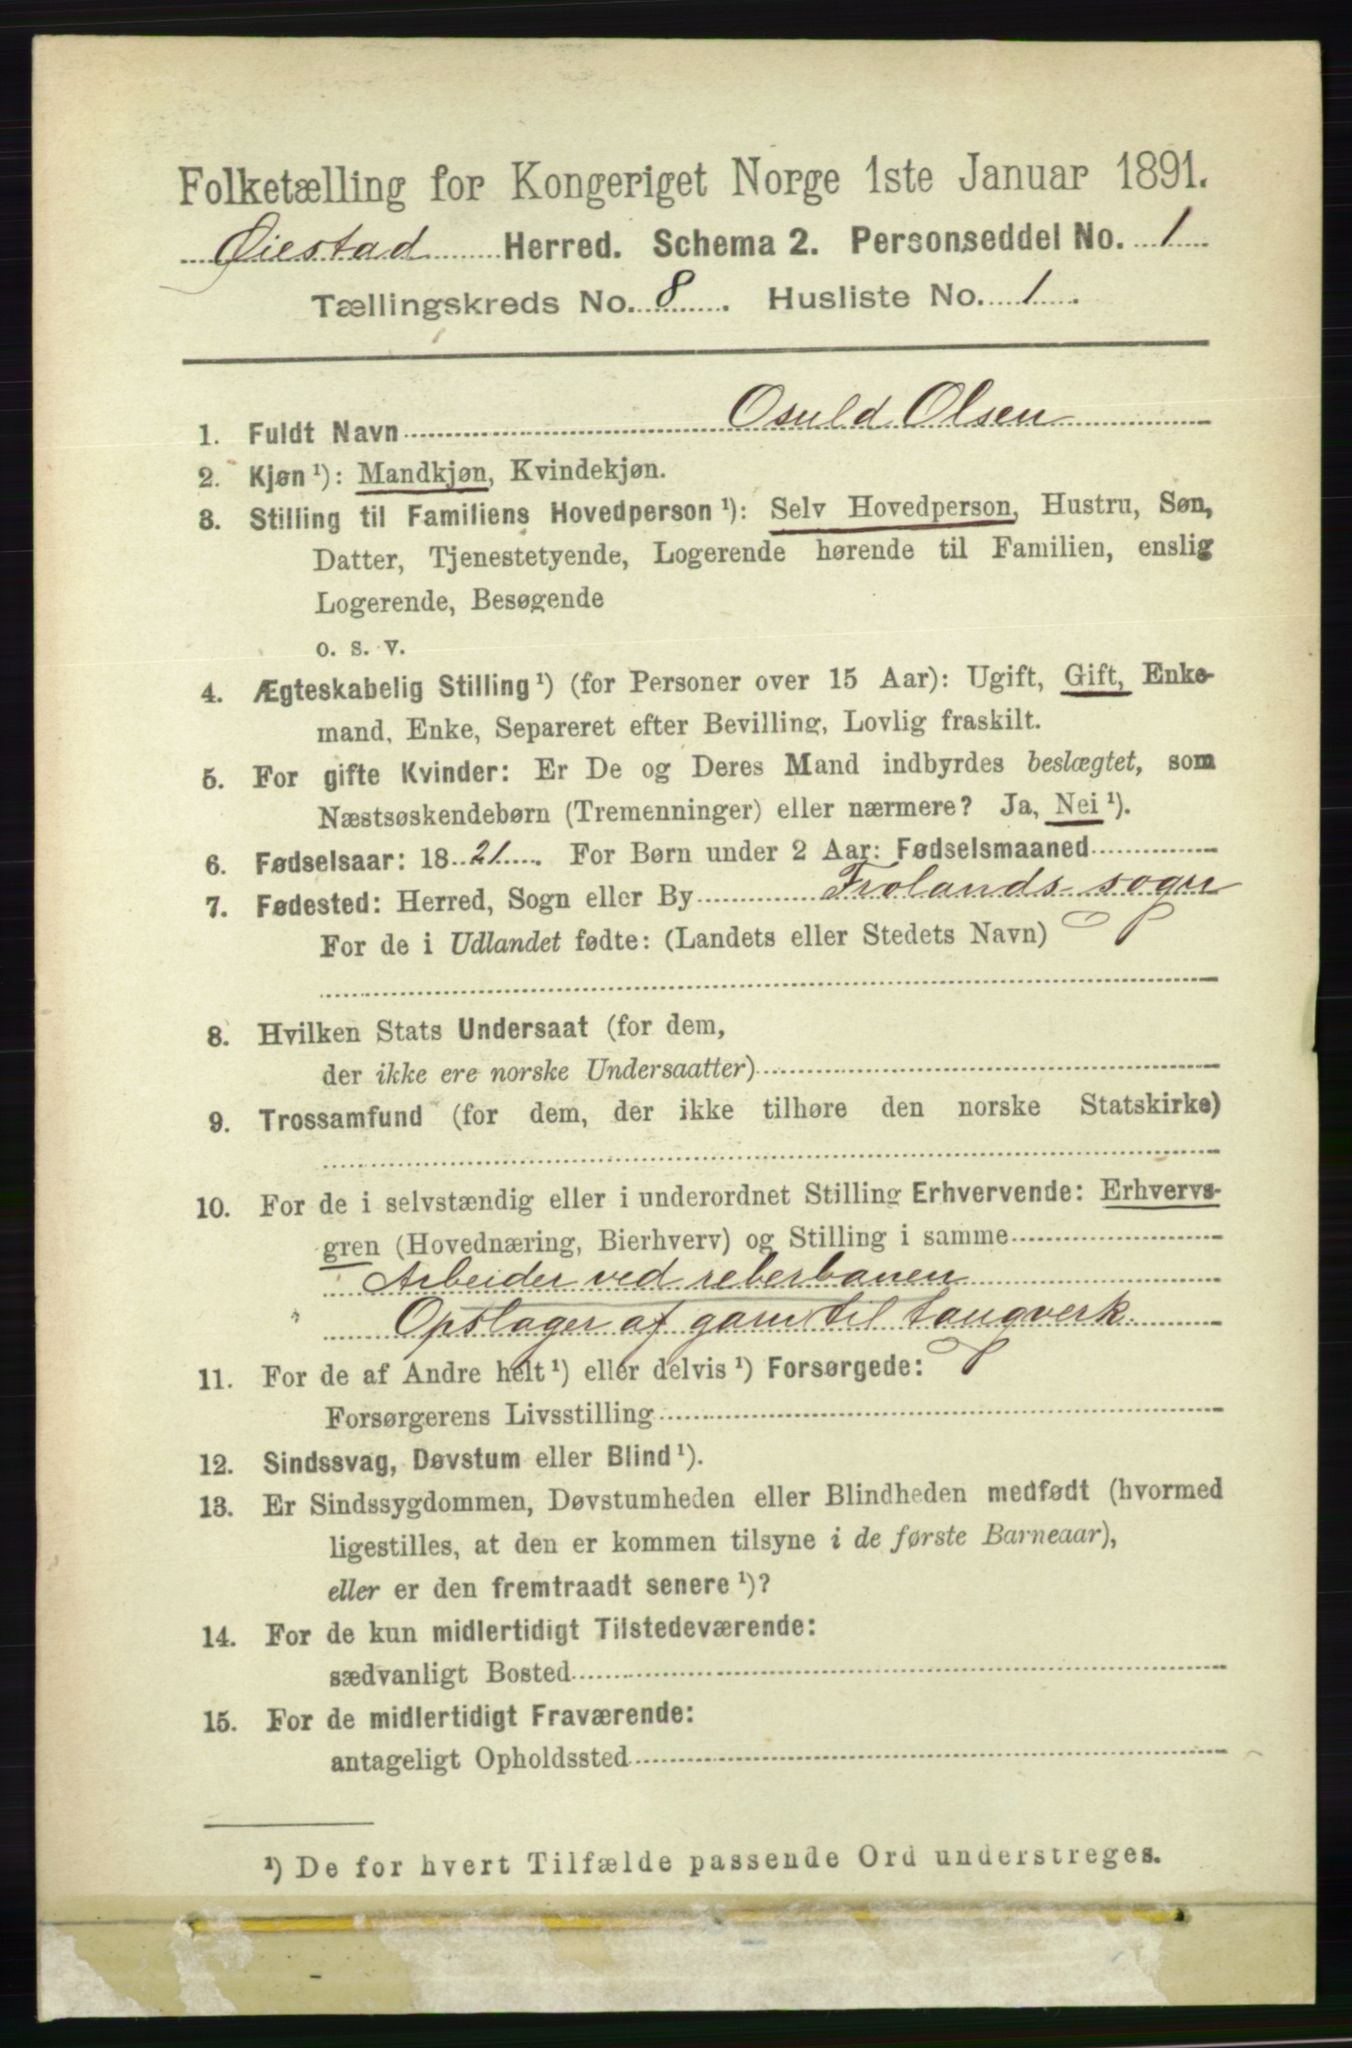 Folketælling for Kongeriget Norge 1ste Januar 1891.
Øiestad Herred. Schema 2. Personseddel No. 1
Tællingskreds No. 8. Husliste No. 1.
1. Fuldt Navn Osuld Olsen
2. Kjøn ¹): Mandkjøn, Kvindekjøn.
3. Stilling til Familiens Hovedperson ¹): Selv Hovedperson, Hustru, Søn,
Datter, Tjenestetyende, Logerende hørende til Familien, enslig
Logerende, Besøgende
o. s. v.
4. Ægteskabelig Stilling ¹) (for Personer over 15 Aar): Ugift, Gift, Enke-
mand, Enke, Separeret efter Bevilling, Lovlig fraskilt.
5. For gifte Kvinder: Er De og Deres Mand indbyrdes beslægtet, som
Næstsøskendebørn (Tremenninger) eller nærmere? Ja, Nei ¹).
6. Fødselsaar: 1821. For Børn under 2 Aar: Fødselsmaaned
7. Fødested: Herred, Sogn eller By Frolands sogn
For de i Udlandet fødte: (Landets eller Stedets Navn)
8. Hvilken Stats Undersaat (for dem,
der ikke ere norske Undersaatter)
9. Trossamfund (for dem, der ikke tilhøre den norske Statskirke)
10. For de i selvstændig eller i underordnet Stilling Erhvervende: Erhvervs-
gren (Hovednæring, Bierhverv) og Stilling i samme
Arbeider ved reberbanen
" Opslager af garn til tougverk.
11. For de af Andre helt ¹) eller delvis ¹) Forsørgede:
Forsørgerens Livsstilling
12. Sindssvag, Døvstum eller Blind ¹).
13. Er Sindssygdommen, Døvstumheden eller Blindheden medfødt (hvormed
ligestilles, at den er kommen tilsyne i de første Barneaar),
eller er den fremtraadt senere ¹)?
14. For de kun midlertidigt Tilstedeværende:
sædvanligt Bosted
15. For de midlertidigt Fraværende:
antageligt Opholdssted
¹) De for hvert Tilfælde passende Ord understreges.